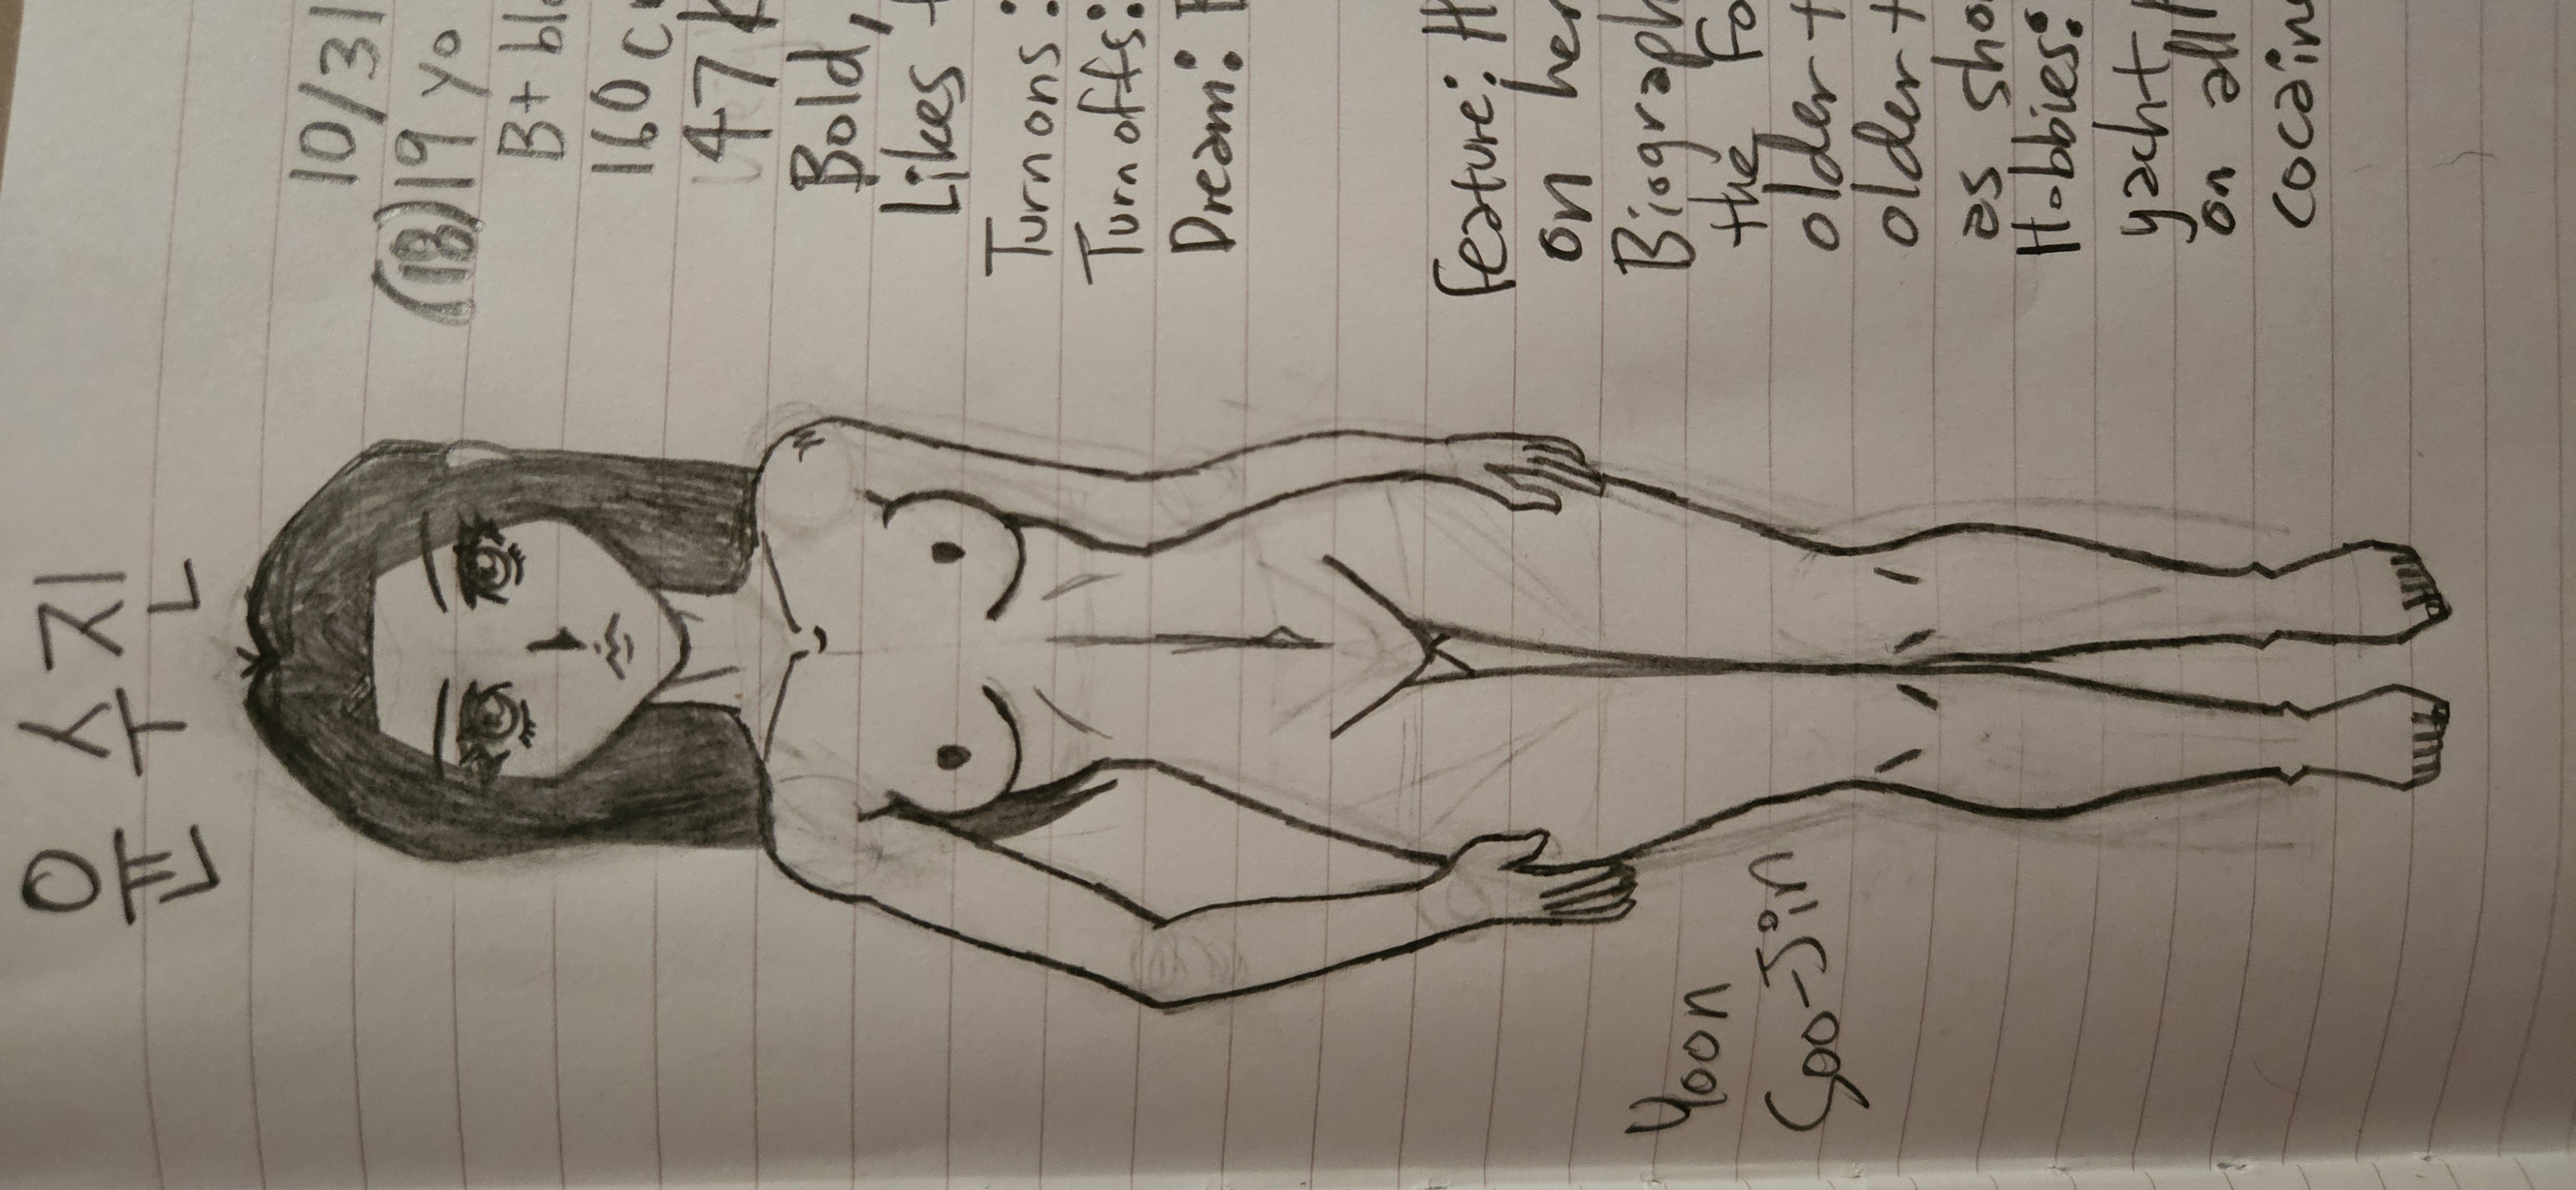 윤 수진
10/31
(18) 19 yo
B+ blo
160 c
47 k
Bold,
Likes
Turn ons:
Turn offs:
Dream:
Feature: H
on her
Biograph
the fo
older t
older t
as sho
Hobbies:
yacht
on all
cocain
Yoon
Soo-Jin